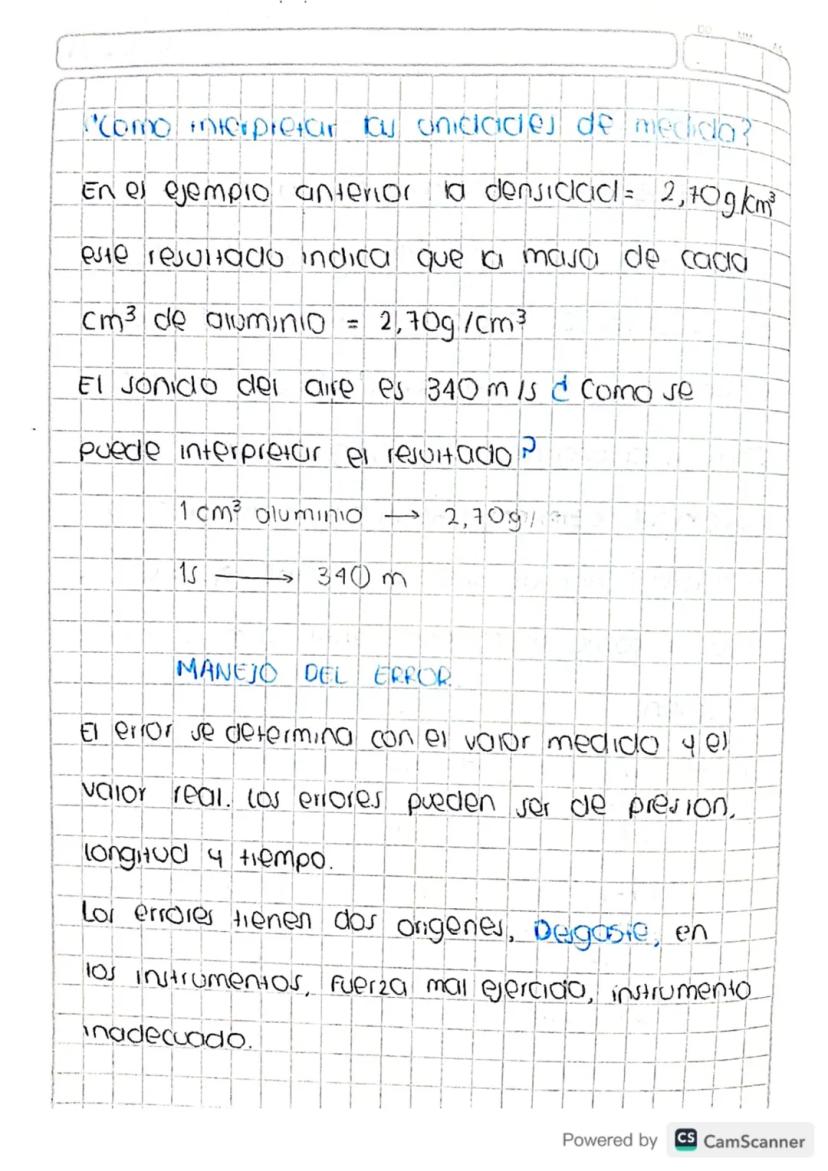 ¿Como interpretar las unidades de medida?
En el ejemplo anterior la densidad = 2,70g/cm³
este resultado indica que la masa de cada
cm³ de aluminio = 2,70g/cm³
El sonido del aire es 340 m/s ¿ Como se
puede interpretar el resultado?
1 cm³ aluminio → 2,70g/
1s → 340 m
MANEJO DEL ERROR
El error se determina con el valor medido y el
valor real. Los errores pueden ser de presion,
longitud y tiempo.
Los errores tienen dos origenes, Desgaste, en
los instrumentos, Fuerza mal ejercida, instrumento
inadecuado.
Powered by CS CamScanner